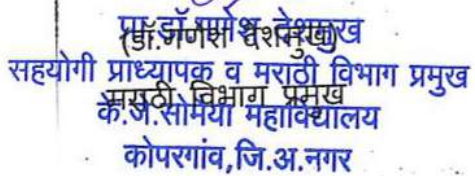 प्रा.डॉ.गणेश देशमुख
(डॉ.गणेश देशमुख)
सहयोगी प्राध्यापक व मराठी विभाग प्रमुख
मराठी विभाग प्रमुख
के.जे.सोमैया महाविद्यालय
कोपरगांव,जि.अ.नगर